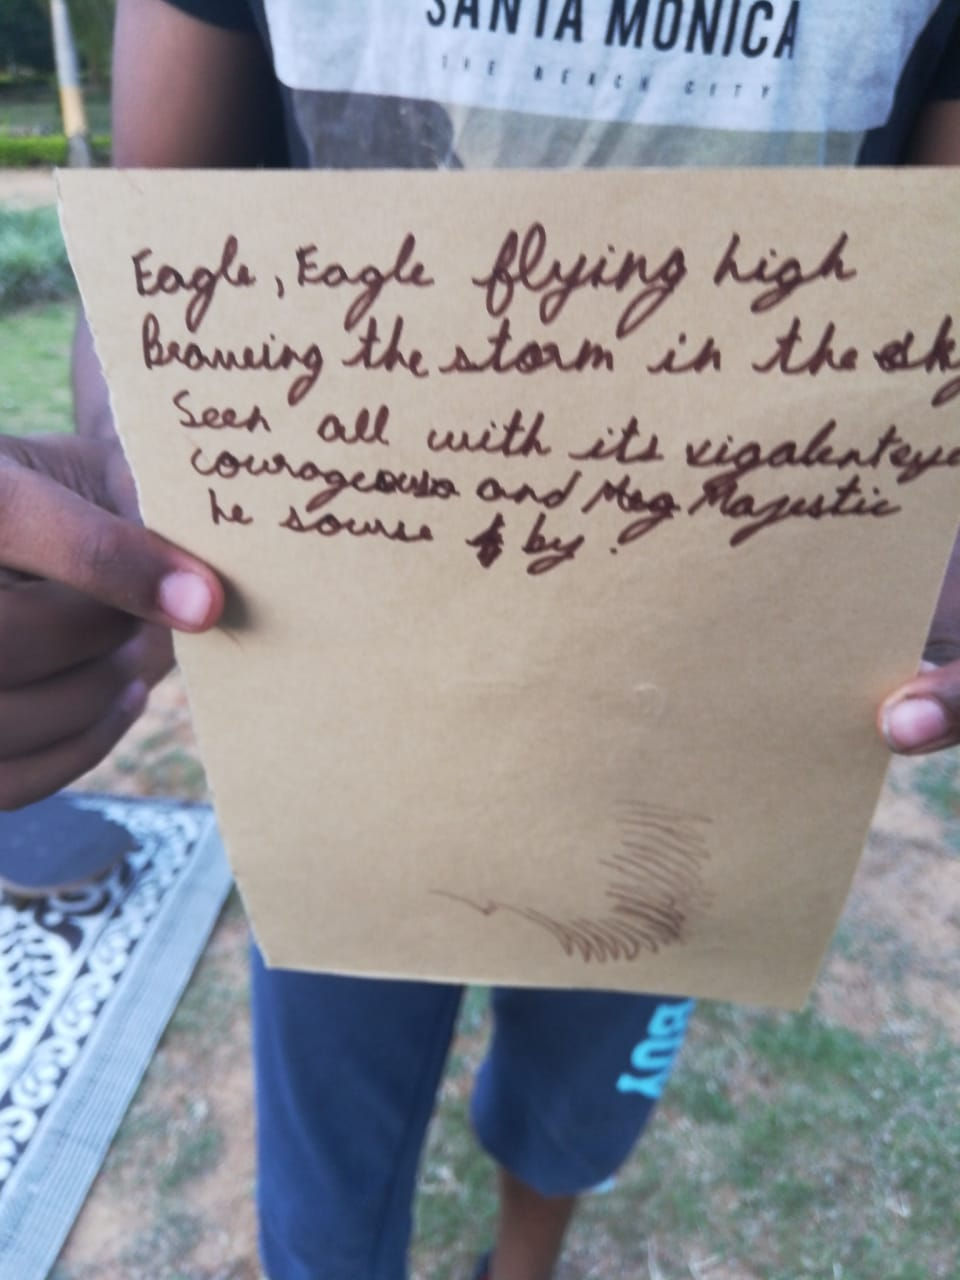 SANTA MONICA
THE BEACH CITY
Eagle, Eagle flying high
the storm in the sky
Seen all with its vigalent eye
courageous and Meg Majestic
he sourse by.
BUY